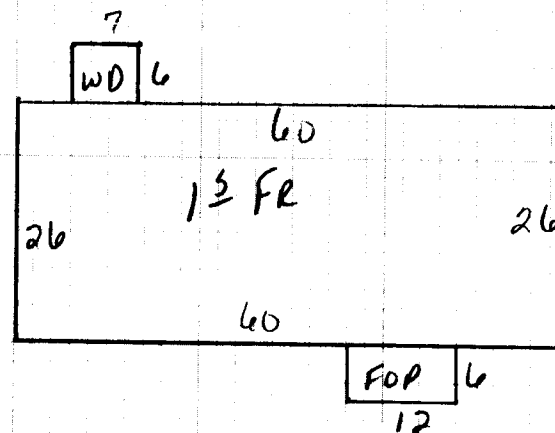 7
WD 6
60
1 S FR
26 26
60
FOP 6
12